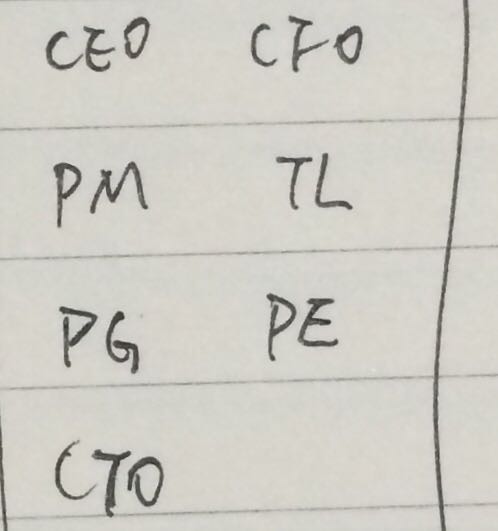 CEO CFO
PM TL
PG PE
CTO